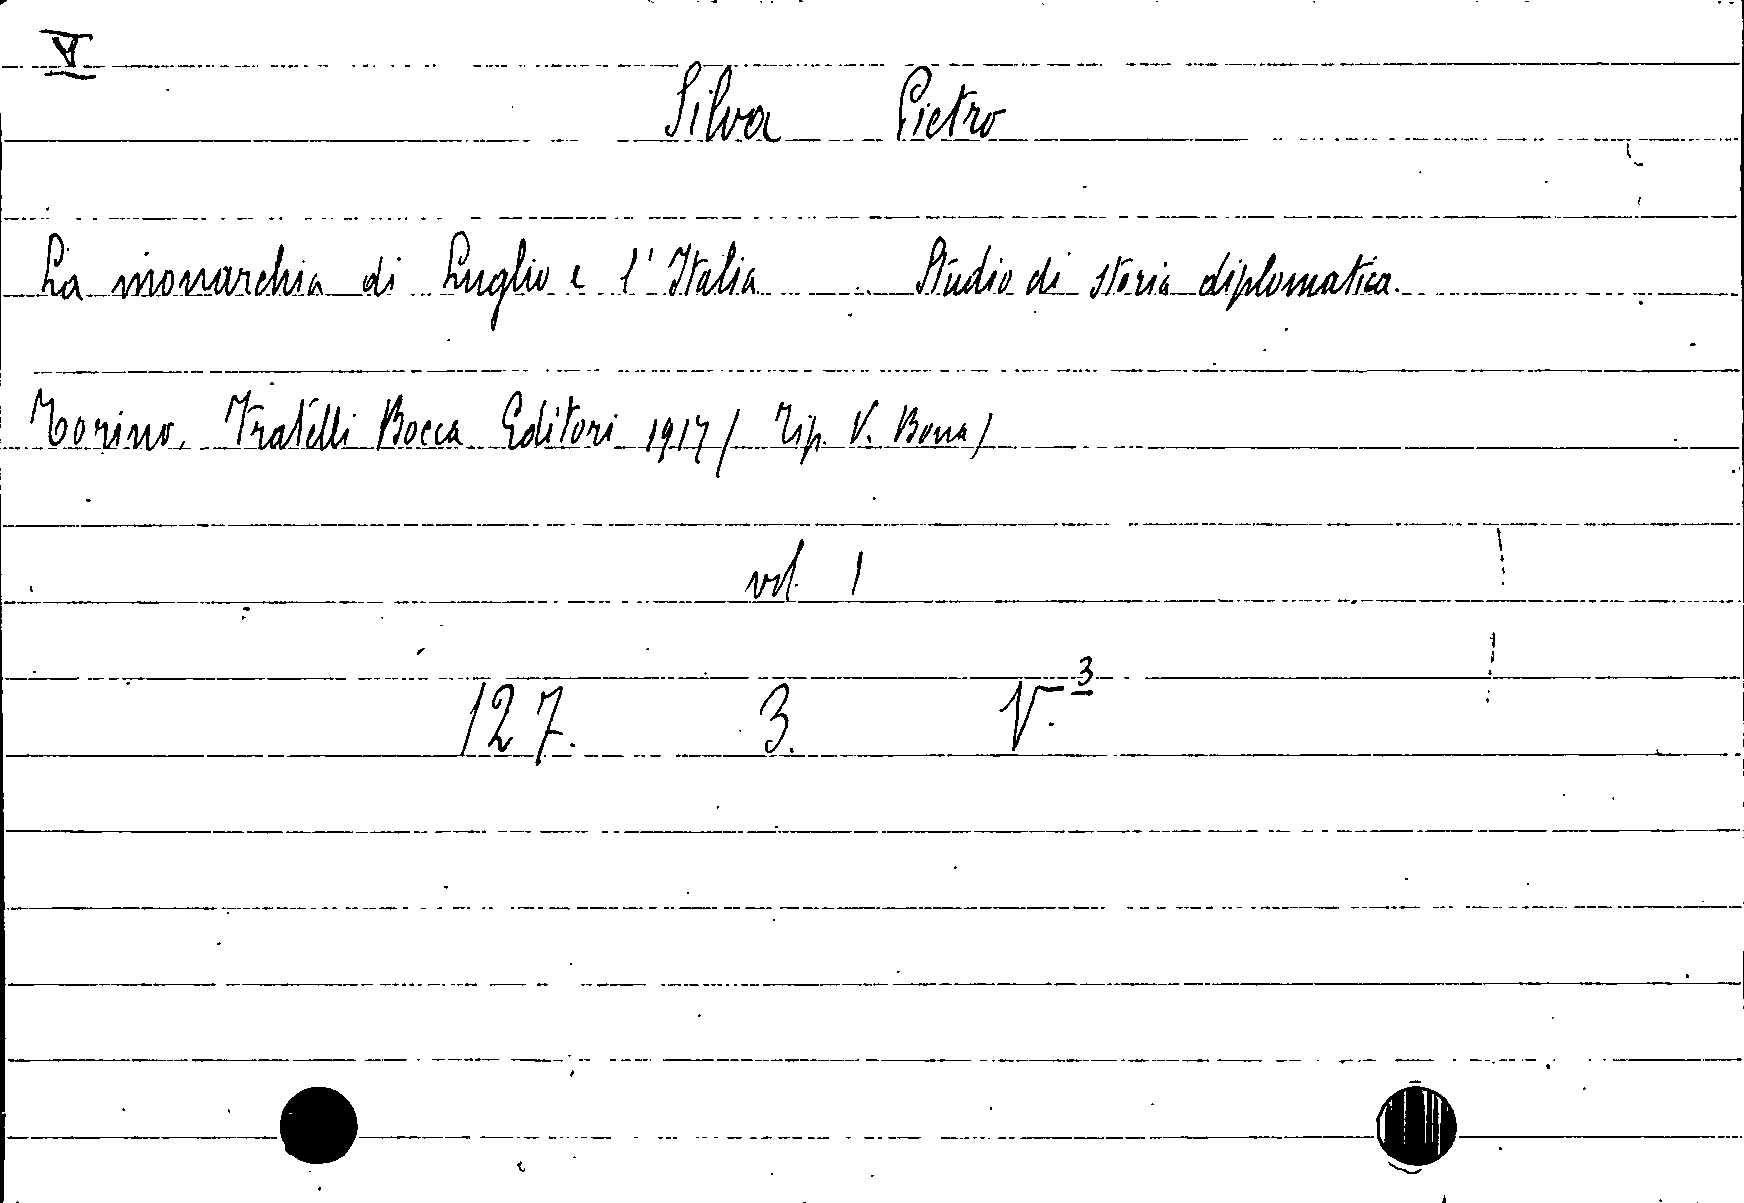 V
Silva Pietro
La monarchia di Luglio e l'Italia Studio di storia diplomatica.
Torino. Fratelli Bocca Editori 1917 / Tip. V. Bona /
vol. 1
127. 3. V.3